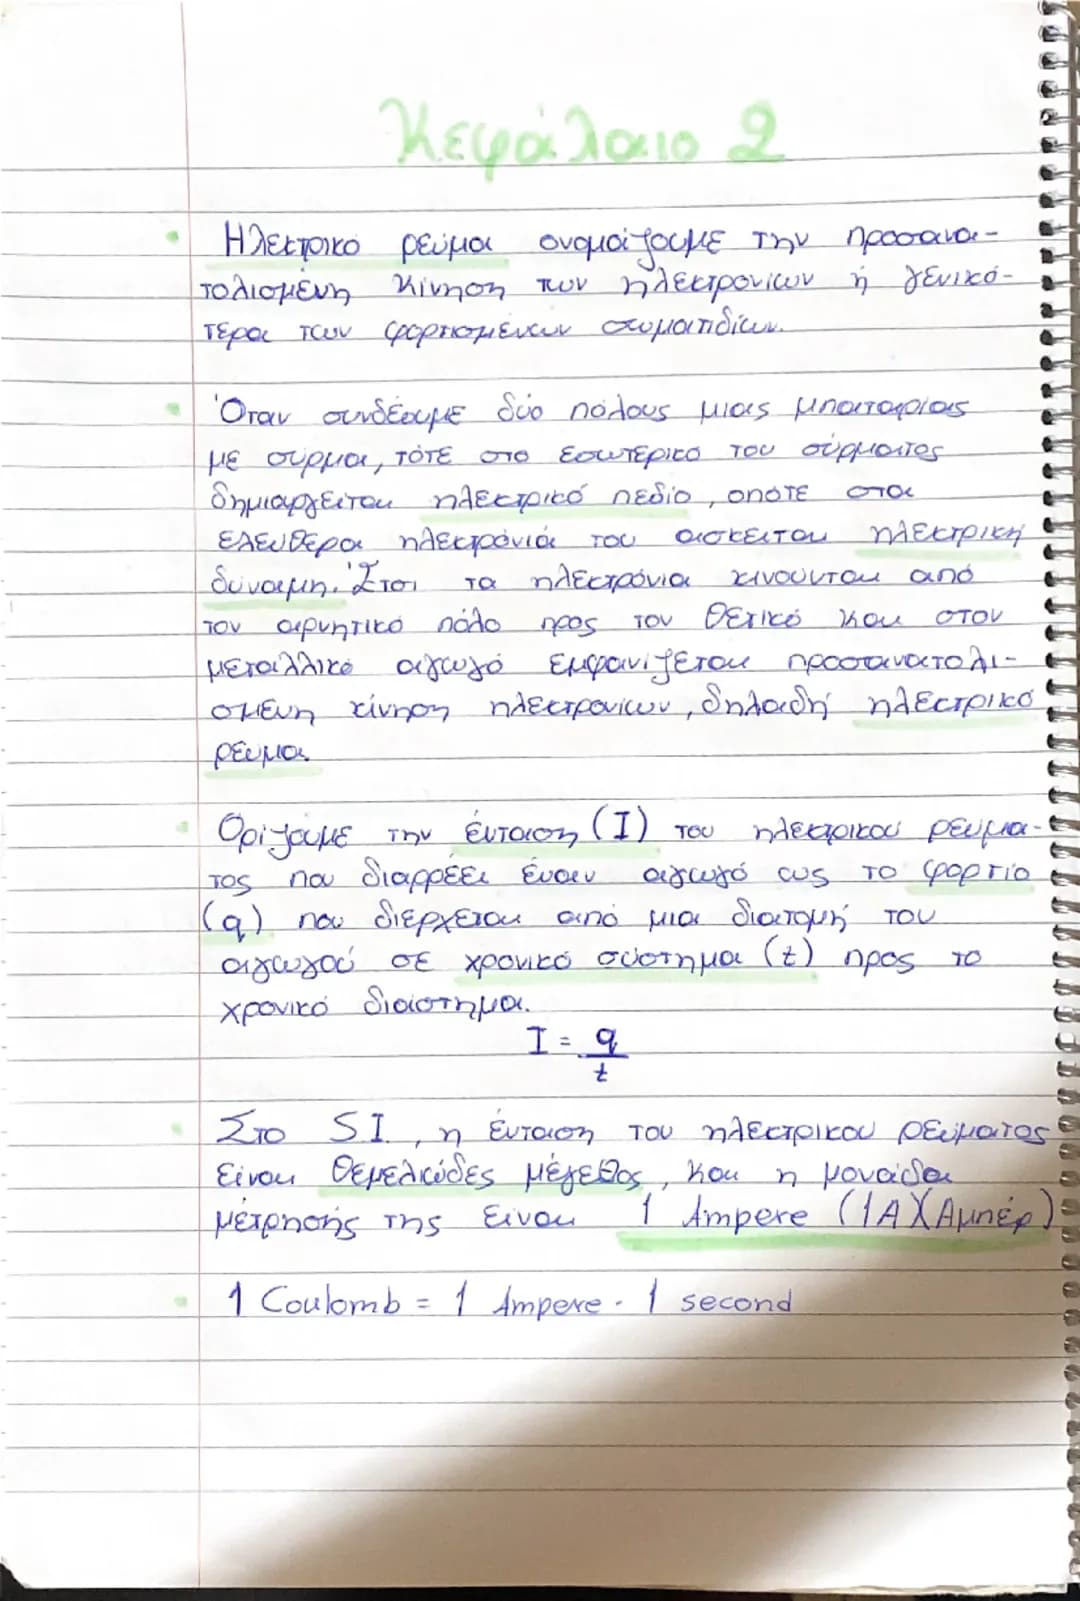 Κεφάλαιο 2
Ηλεκτρικό ρεύμα ονομάζουμε την προσανα-
τολισμένη κίνηση των ηλεκτρονίων ή γενικό-
τερα των φορτισμένων σωματιδίων.
Όταν συνδέουμε δύο πόλους μιας μπαταρίας
με σύρμα, τότε στο εσωτερικό του σύρματος
δημιουργείται ηλεκτρικό πεδίο, οπότε στα
ελεύθερα ηλεκτρόνιά του ασκείται ηλεκτρική
δύναμη. Έτσι τα ηλεκτρόνια κινούνται από
τον αρνητικό πόλο προς τον θετικό και στον
μεταλλικό αγωγό εμφανίζεται προσανατολι-
σμένη κίνηση ηλεκτρονίων, δηλαδή ηλεκτρικό
ρεύμα.
Ορίζουμε την ένταση (I) του ηλεκτρικού ρεύμα-
τος που διαρρέει έναν αγωγό ως το φορτίο
(q) που διέρχεται από μια διατομή του
αγωγού σε χρονικό σύστημα (t) προς το
χρονικό διάστημα.
I = q
t
Στο S.I., η ένταση του ηλεκτρικού ρεύματος
είναι θεμελιώδες μέγεθος, και η μονάδα
μέτρησής της είναι 1 Ampere (1A)(Αμπέρ)
1 Coulomb = 1 Ampere · 1 second